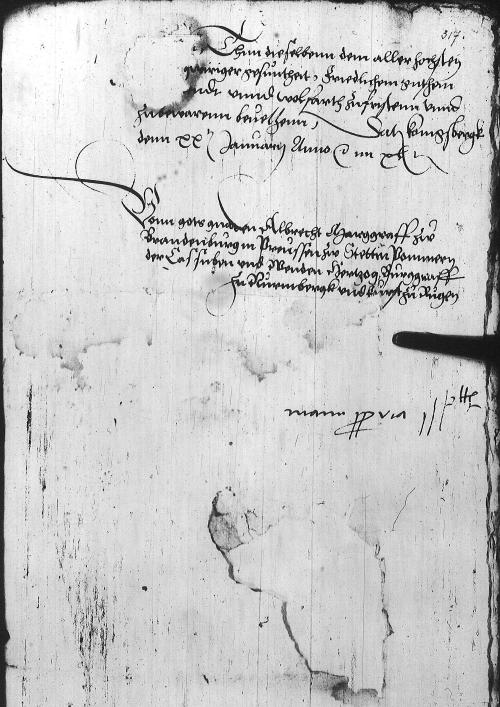 317.
Thun dieselbenn dem aller hohsten
gesuntheit, Friedlichem guthen
unnd wolfarth zufristenn unnd
zubewarenn beuelhenn, Datum konigsbergk
denn xx Januarij Anno im
Vonn gots gnaden Albrecht Marggraff zu
Brandenburg in Preussen zu Stettin Pommern
der Cassuben und Wenden Hertzog Burggraff
zu Nurmbergk und furst zu Rugen
manu ppria